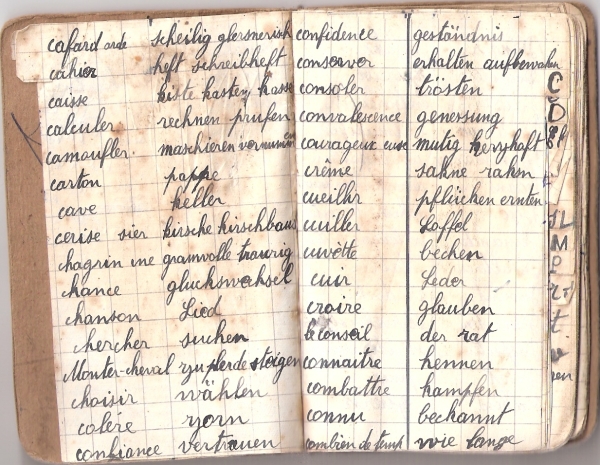 cafard arde scheilig glersnerisch
cahier heft schreibheft
caisse kiste kasten kasse
calculer rechnen prufen
camoufler maschieren vermumm
carton pappe
cave keller
cerise sier kirsche kirschbaus
chagrin ine gramvolle traurig
chance gluckswechsel
chanson Lied
chercher suchen
Monter-cheval zu pferde steigen
choisir wählen
colére zorn
confiance vertrauen
confidence geständnis
conserver erhalten aufbewahen
consoler trösten
convalescence genessung
courageux euse mutig herzhaft
crême sahne rahm
cueillir pflücken ernten
cuiller Loffel
cuvètte becken
cuir Leder
croire glauben
le conseil der rat
connaitre kennen
combattre kampfen
connu beckannt
combien de temp wie lange
C
D
JL
M
P